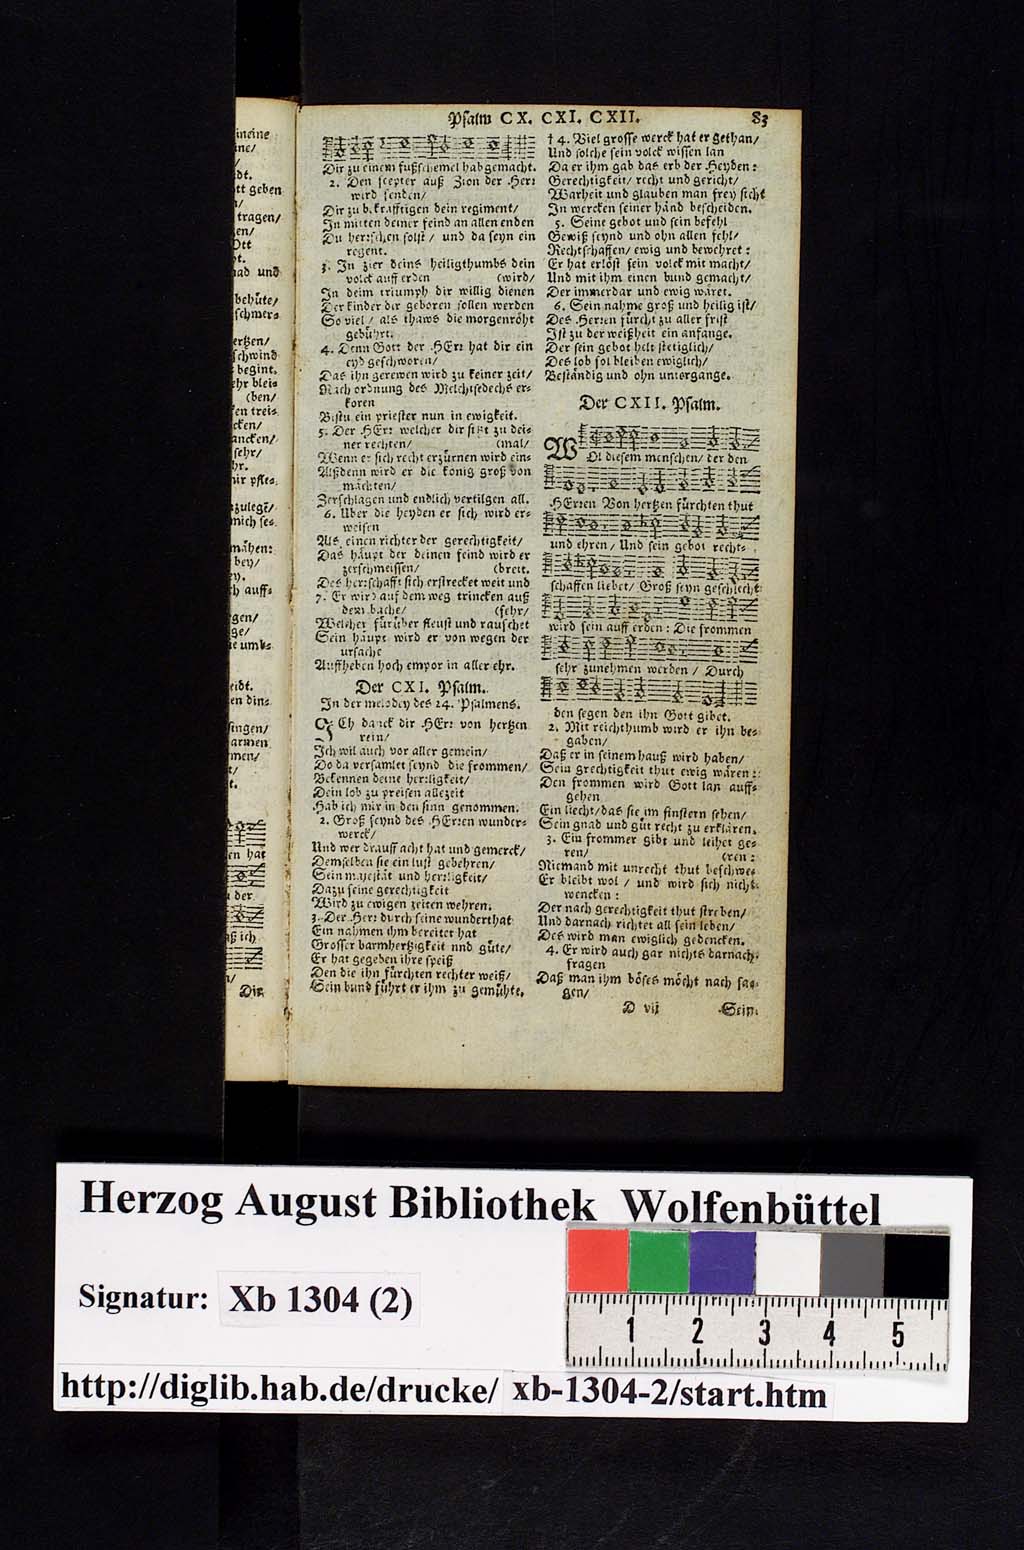 Psalm CX. CXI. CXII. 83
Dir zu einem fußschemel hab gemacht.
2. Den scepter auß Zion der Herr
wird senden/
Dir zu bekräfftigen dein regiment/
In mitten deiner feind an allen enden
Du herrschen solst/ und da seyn ein
regent.
3. In zier deins heiligthumbs dein
volck auff erden (wird/
In deim triumph dir willig dienen
Der kinder dir geboren sollen werden
So viel/ als thaws die morgenröht
gebührt.
4. Denn Gott der HErr hat dir ein
eyd geschworen/
Das ihn gerewen wird zu keiner zeit/
Nach ordnung des Melchisedechs er-
koren
Bistu ein priester nun in ewigkeit.
5. Der HErr welcher dir sitzt zu dei-
ner rechten/ (mal/
Wenn er sich recht erzürnen wird ein-
Alßdenn wird er die könig groß von
mächten/
Zerschlagen und endlich vertilgen all.
6. Uber die heyden er sich wird er-
weisen
Als einen richter der gerechtigkeit/
Das häupt der deinen feind wird er
zerschmeissen/ (breit.
Des herrschafft sich erstrecket weit und
7. Er wird auf dem weg trincken auß
dem bache/ (sehr/
Welcher fürüber fleust und rauschet
Sein häupt wird er von wegen der
ursache
Auffheben hoch empor in aller ehr.
Der CXI. Psalm.
In der melodey des 24. Psalmens.
ICh danck dir HErr von hertzen
rein/
Ich wil auch vor aller gemein/
Do da versamlet seynd die frommen/
Bekennen deine herrligkeit/
Dein lob zu preisen allezeit
Hab ich mir in den sinn genommen.
2. Groß seynd des HErren wunder-
werck/
Und wer drauff acht hat und gemerck/
Demselben sie ein lust gebehren/
Sein mayestät und herrligkeit/
Dazu seine gerechtigkeit
Wird zu ewigen zeiten wehren.
3. Der Herr durch seine wunderthat
Ein nahmen ihm bereitet hat
Grosser barmhertzigkeit und güte/
Er hat gegeben ihre speiß
Den die ihn fürchten rechter weiß/
Sein bund führt er ihm zu gemühte.
† 4. Viel grosse werck hat er gethan/
Und solche sein volck wissen lan
Da er ihm gab das erb der Heyden:
Gerechtigkeit/ recht und gericht/
Warheit und glauben man frey sicht
In wercken seiner händ bescheiden.
5. Seine gebot und sein befehl
Gewiß seynd und ohn allen fehl/
Rechtschaffen/ ewig und bewehret:
Er hat erlöst sein volck mit macht/
Und mit ihm einen bund gemacht/
Der immerdar und ewig wäret.
6. Sein nahme groß und heilig ist/
Des Herren fürcht zu aller frist
Ist zu der weißheit ein anfange.
Der sein gebot helt stetiglich/
Des lob sol bleiben ewiglich/
Beständig und ohn untergange.
Der CXII. Psalm.
WOl diesem menschen/ der den
HErren Von hertzen fürchten thut
und ehren/ Und sein gebot recht-
schaffen liebet/ Groß seyn geschlecht
wird sein auff erden: Die frommen
sehr zunehmen werden/ Durch
den segen den ihn Gott gibet.
2. Mit reichthumb wird er ihn be-
gaben/
Daß er in seinem hauß wird haben/
Sein grechtigkeit thut ewig wären:
Den frommen wird Gott lan auff-
gehen
Ein liecht/ das sie im finstern sehen/
Sein gnad und güt recht zu erklären.
3. Ein frommer gibt und leihet ge-
ren/ (ren:
Niemand mit unrecht thut beschwe-
Er bleibt wol/ und wird sich nicht
wencken:
Der nach gerechtigkeit thut streben/
Und darnach richtet all sein leben/
Des wird man ewiglich gedencken.
4. Er wird auch gar nichts darnach
fragen
Daß man ihm böses möcht nach sa-
gen/
D vii Sein
Herzog August Bibliothek Wolfenbüttel
Signatur: Xb 1304 (2)
1 2 3 4 5
http://diglib.hab.de/drucke/ xb-1304-2/start.htm